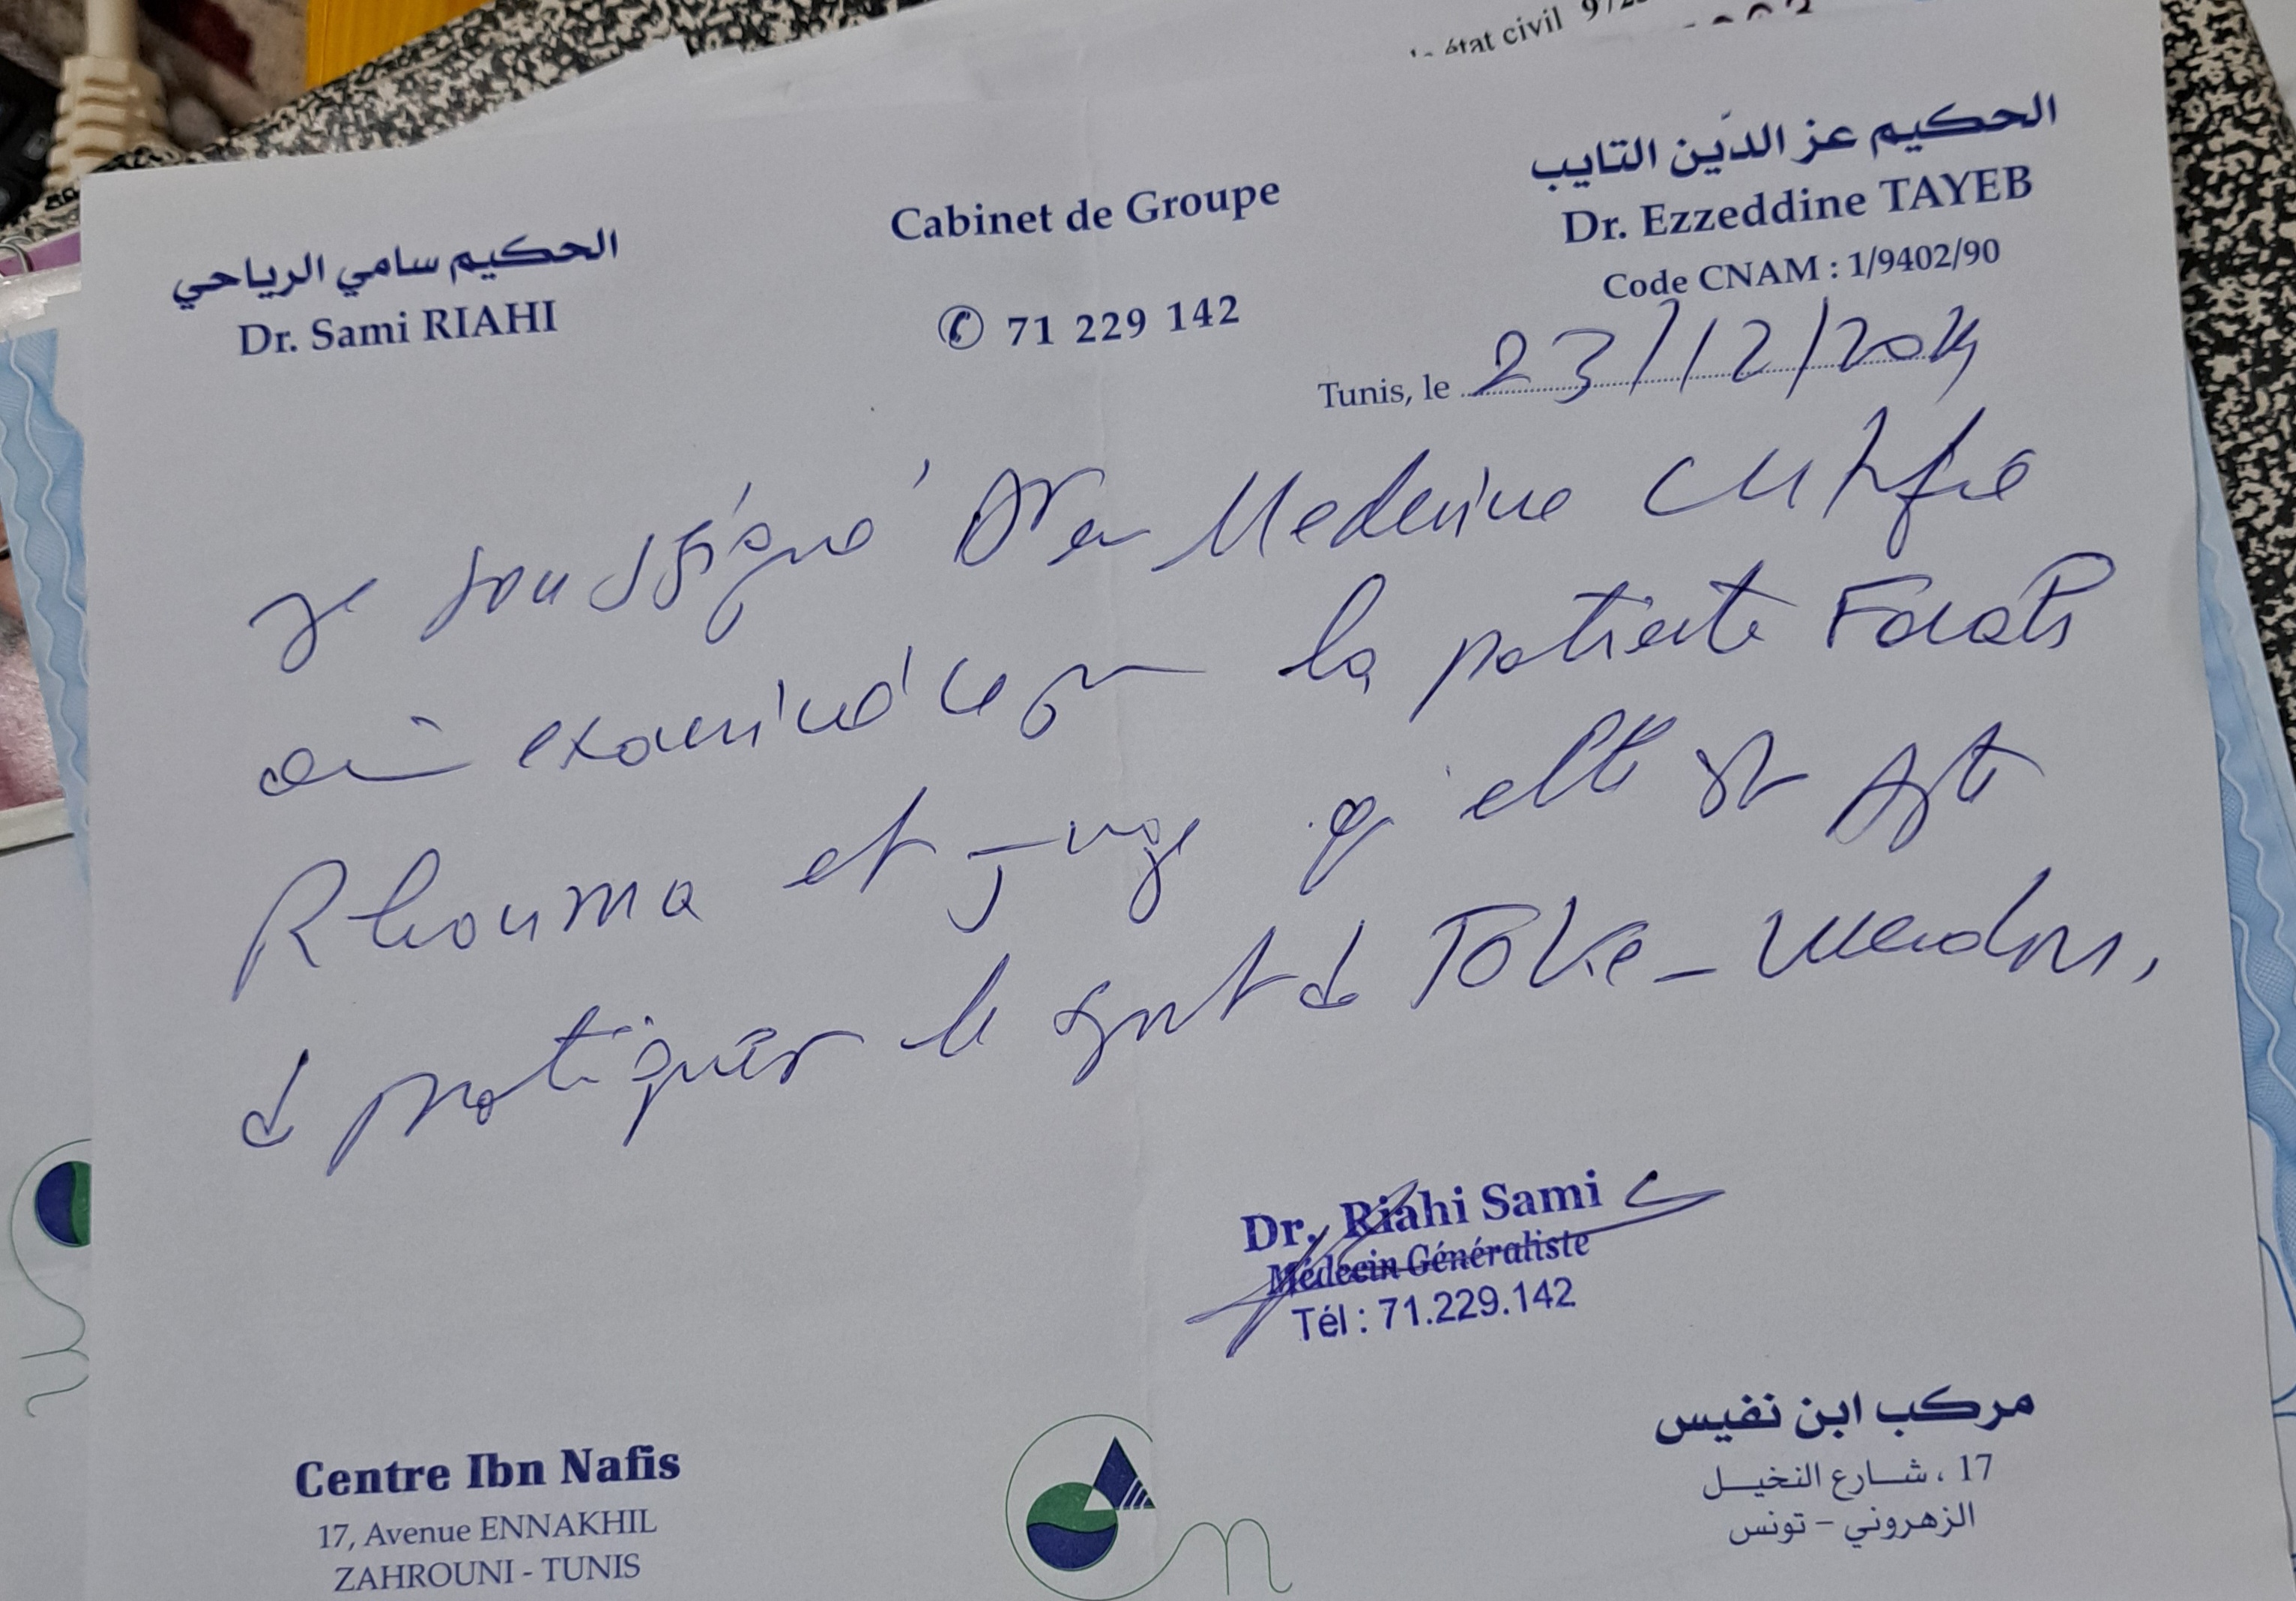 état civil
الحكيم عز الدين التايب
Dr. Ezzeddine TAYEB
Code CNAM : 1/9402/90
Cabinet de Groupe
✆ 71 229 142
الحكيم سامي الرياحي
Dr. Sami RIAHI
Tunis, le 23/12/2024
Je soussigné Dr en Medecine certifie
avoir examiné ce jour la patiente Farah
Rhouma et juge qu'elle est apte
de pratiquer le sport de
Dr. Riahi Sami
Médecin Généraliste
Tél : 71.229.142
Centre Ibn Nafis
17, Avenue ENNAKHIL
ZAHROUNI - TUNIS
مركب ابن نفيس
17 ، شــارع النخيــل
الزهروني – تونس